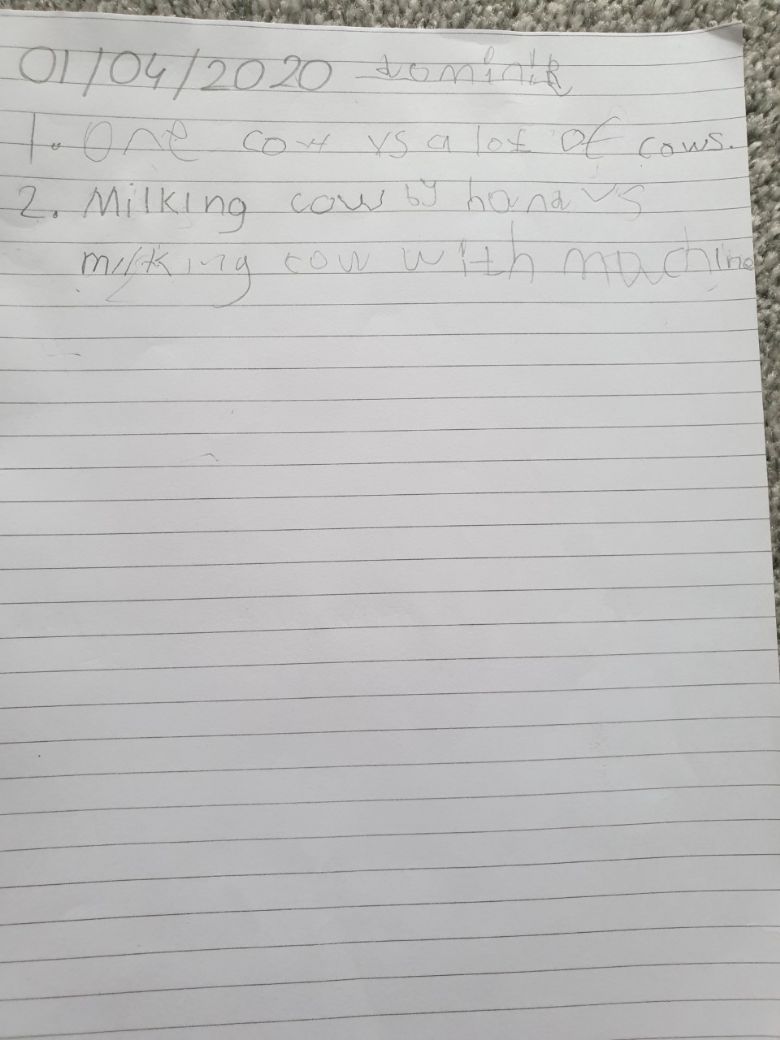 01/04/2020 Dominik
1. One cow vs a lot of cows.
2. Milking cow by hand vs
milking cow with machine